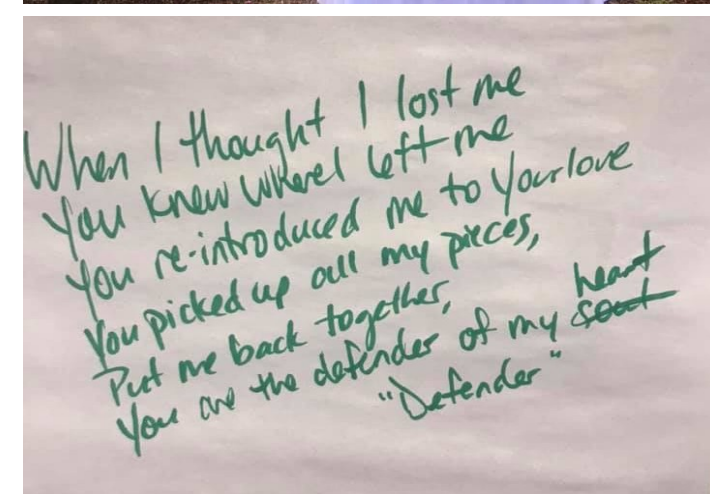 When I thought I lost me
You knew where I left me
You re-introduced me to Your love
You picked up all my pieces,
Put me back together,
You are the defender of my soul heart
"Defender"